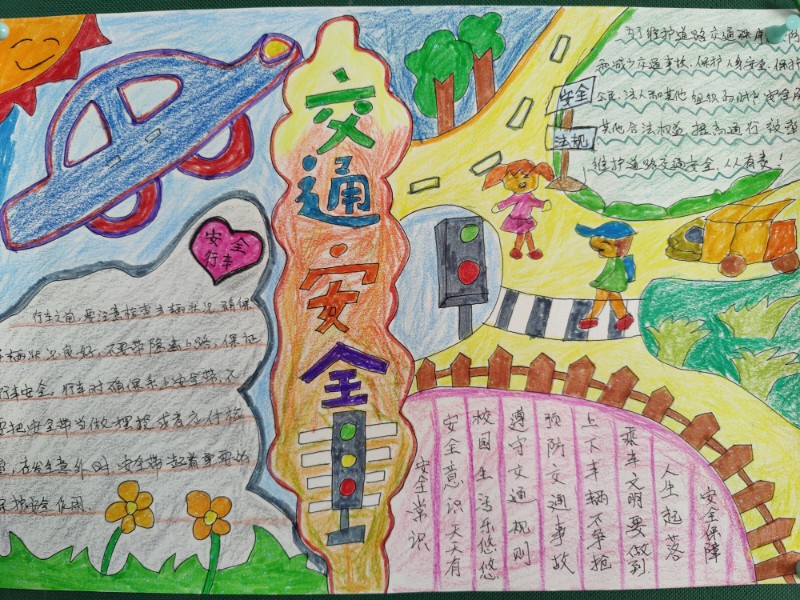 交通安全
安全
行车
行车之前,要注意检查车辆状况,确保
车辆状况良好,不要带隐患上路,保证
行车安全。行车时确保系上安全带,不
要把安全带当做摆设或者应付检
查,在发生意外时安全带起着重要的
保护作用.
安全
法规
为了维护道路交通秩序,预防
和减少交通事故,保护人身安全,保护
公民、法人和其他组织的财产安全及
其他合法权益,提高通行效率
维护道路交通安全,人人有责!
安全常识
安全意识天天有
校园生活乐悠悠
遵守交通规则
预防交通事故
上下车辆不争抢
乘车文明要做到
人生起落
安全保障